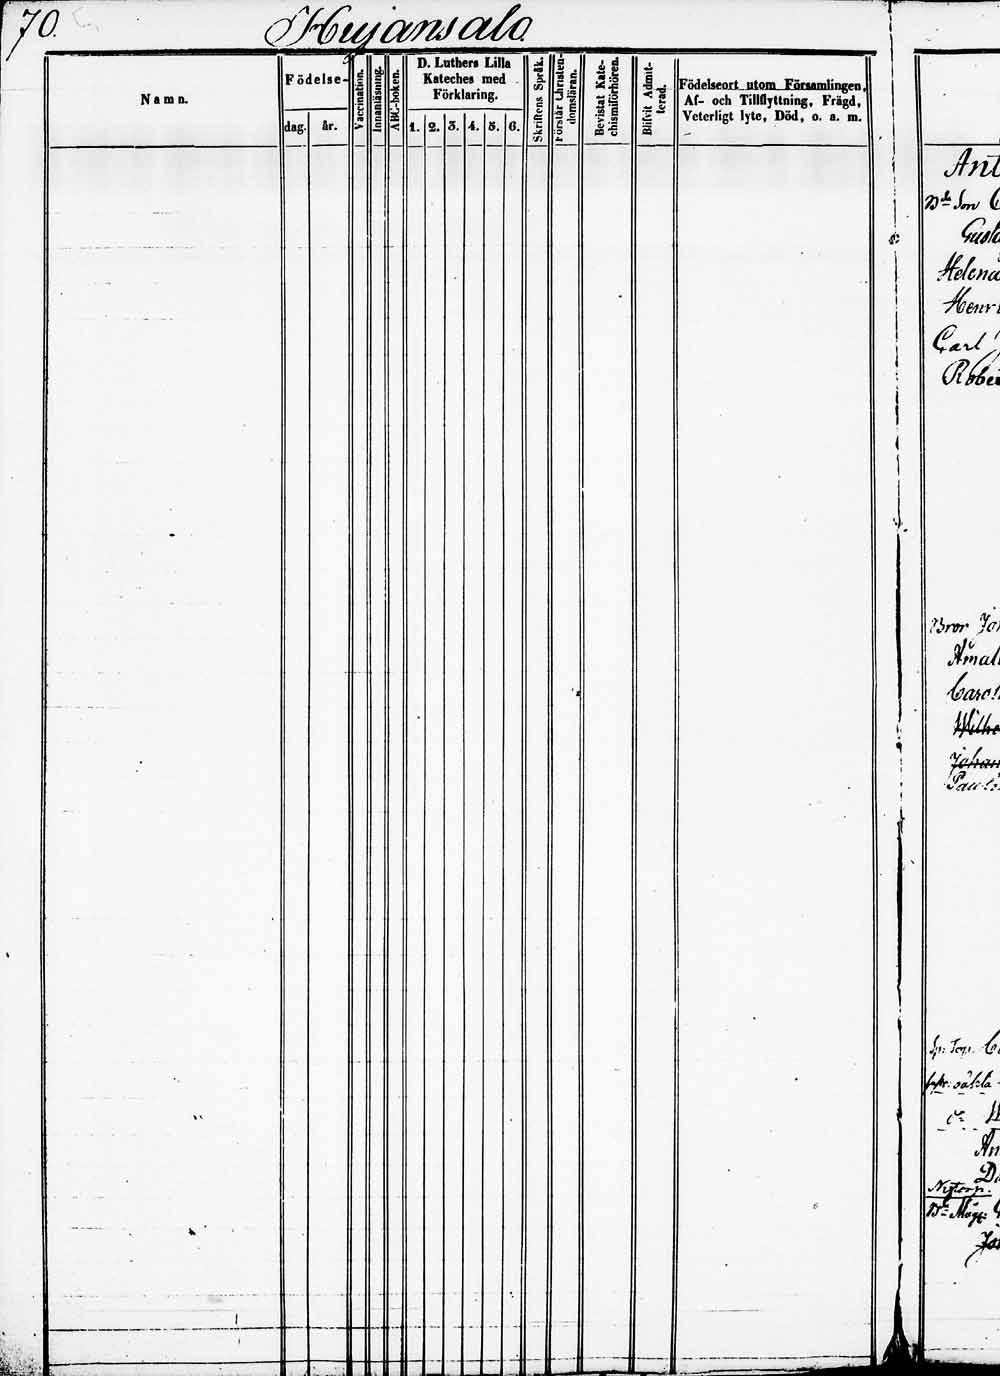 70.
Hujansalo.
Namn.
Födelse-
dag.
år.
Vaccination.
Innanläsning.
ABC-boken.
D. Luthers Lilla
Kateches med
Förklaring.
1. 2. 3. 4. 5. 6.
Skriftens Språk.
Förstår Christen-
domsläran.
Bevistat Kate-
chismiförhören.
Blifvit Admit-
terad.
Födelseort utom Församlingen,
Af- och Tillflyttning, Frägd,
Veterligt lyte, Död, o. a. m.
Ant
Son
Gusta
Helena
Henri
Carl
Rober
Bror Joh
Amali
Carol
Wilhe
Johan
Paul